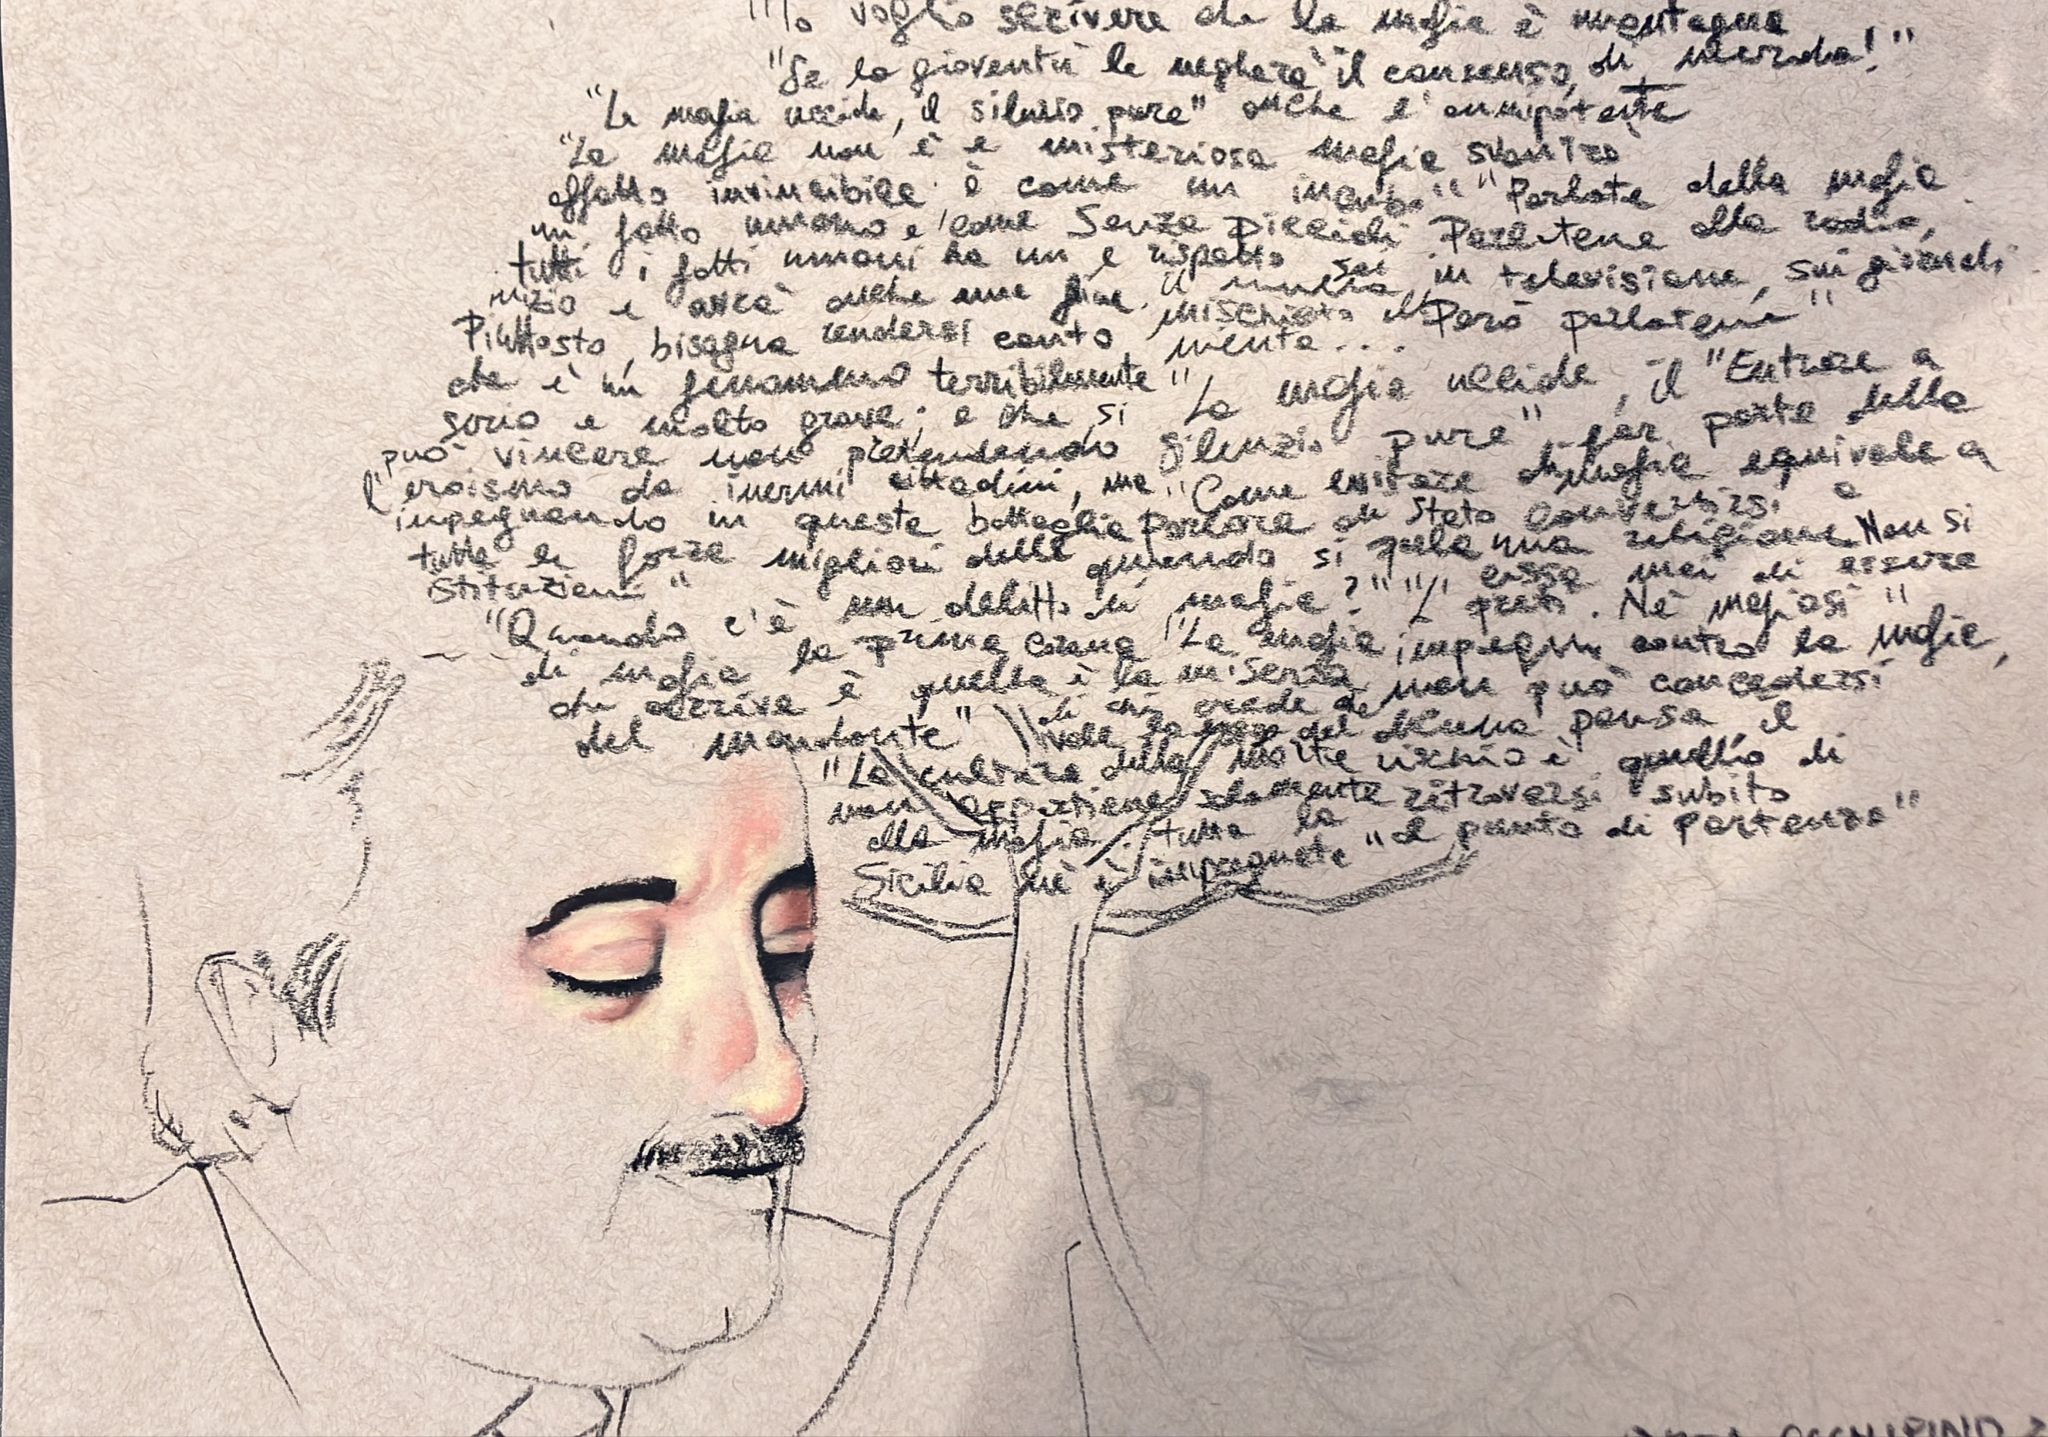 "Io voglio scrivere che la mafia è montagna
"Se la gioventù le negherà il consenso, di merda!"
"La mafia uccide, il silenzio pure" anche l'onnipotente
"La mafia non è e misteriosa mafia svanirà"
affatto invincibile; è come un incubo" "Parlate della mafia
un fatto umano e come Senza Parlatene alla radio,
tutti i fatti umani ha un e rispetto sui in televisione, sui giornali
inizio e avrà anche una fine. il mischiato "Però parlatene"
Piuttosto, bisogna rendersi conto niente...
che è un fenomeno terribilmente "La mafia uccide, il "Entrare a
serio e molto grave; e che si silenzio pure" far parte della
può vincere non pretendendo mafia equivale a
l'eroismo da inermi cittadini, ma "Come evitare di conversi a
impegnando in questa battaglia parlare di Stato una religione. Non si
tutte le forze migliori delle quando si parla cessa mai di essere
istituzioni" mafia?" preti. Nè mafiosi"
"Quando c'è un delitto "La mafia impegno contro la mafia,
di mafia la prima corona è la miseria non può concedersi
che arriva è quella di chi crede pausa, il
del mandante" rischio è quello di
"La cultura della morte ritrovarsi subito
non appartiene solamente "al punto di partenza"
alla mafia. tutta la
Sicilia nè è impregnata"
OCCHIPINO